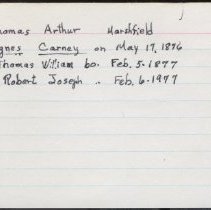 homas Arthur Marshfield
gnes Carney on May 17, 1896
Thomas William bo. Feb. 5. 1877
Robert Joseph .. Feb. 6. 1977